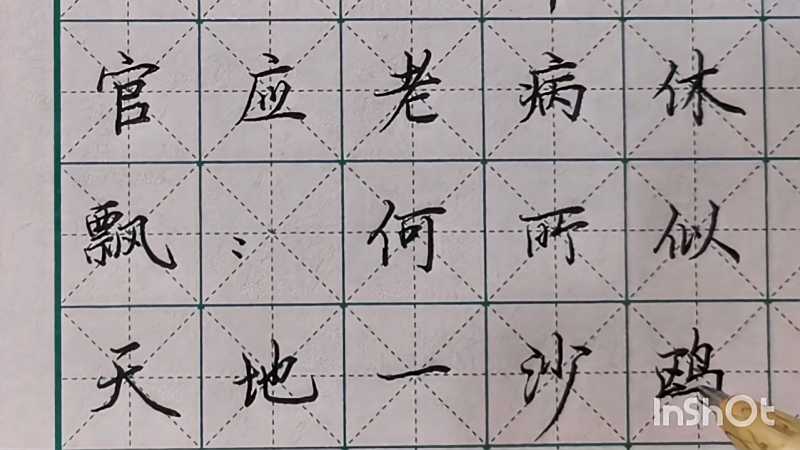 官应老病休
飘〻何所似
天地一沙鸥
InShOt